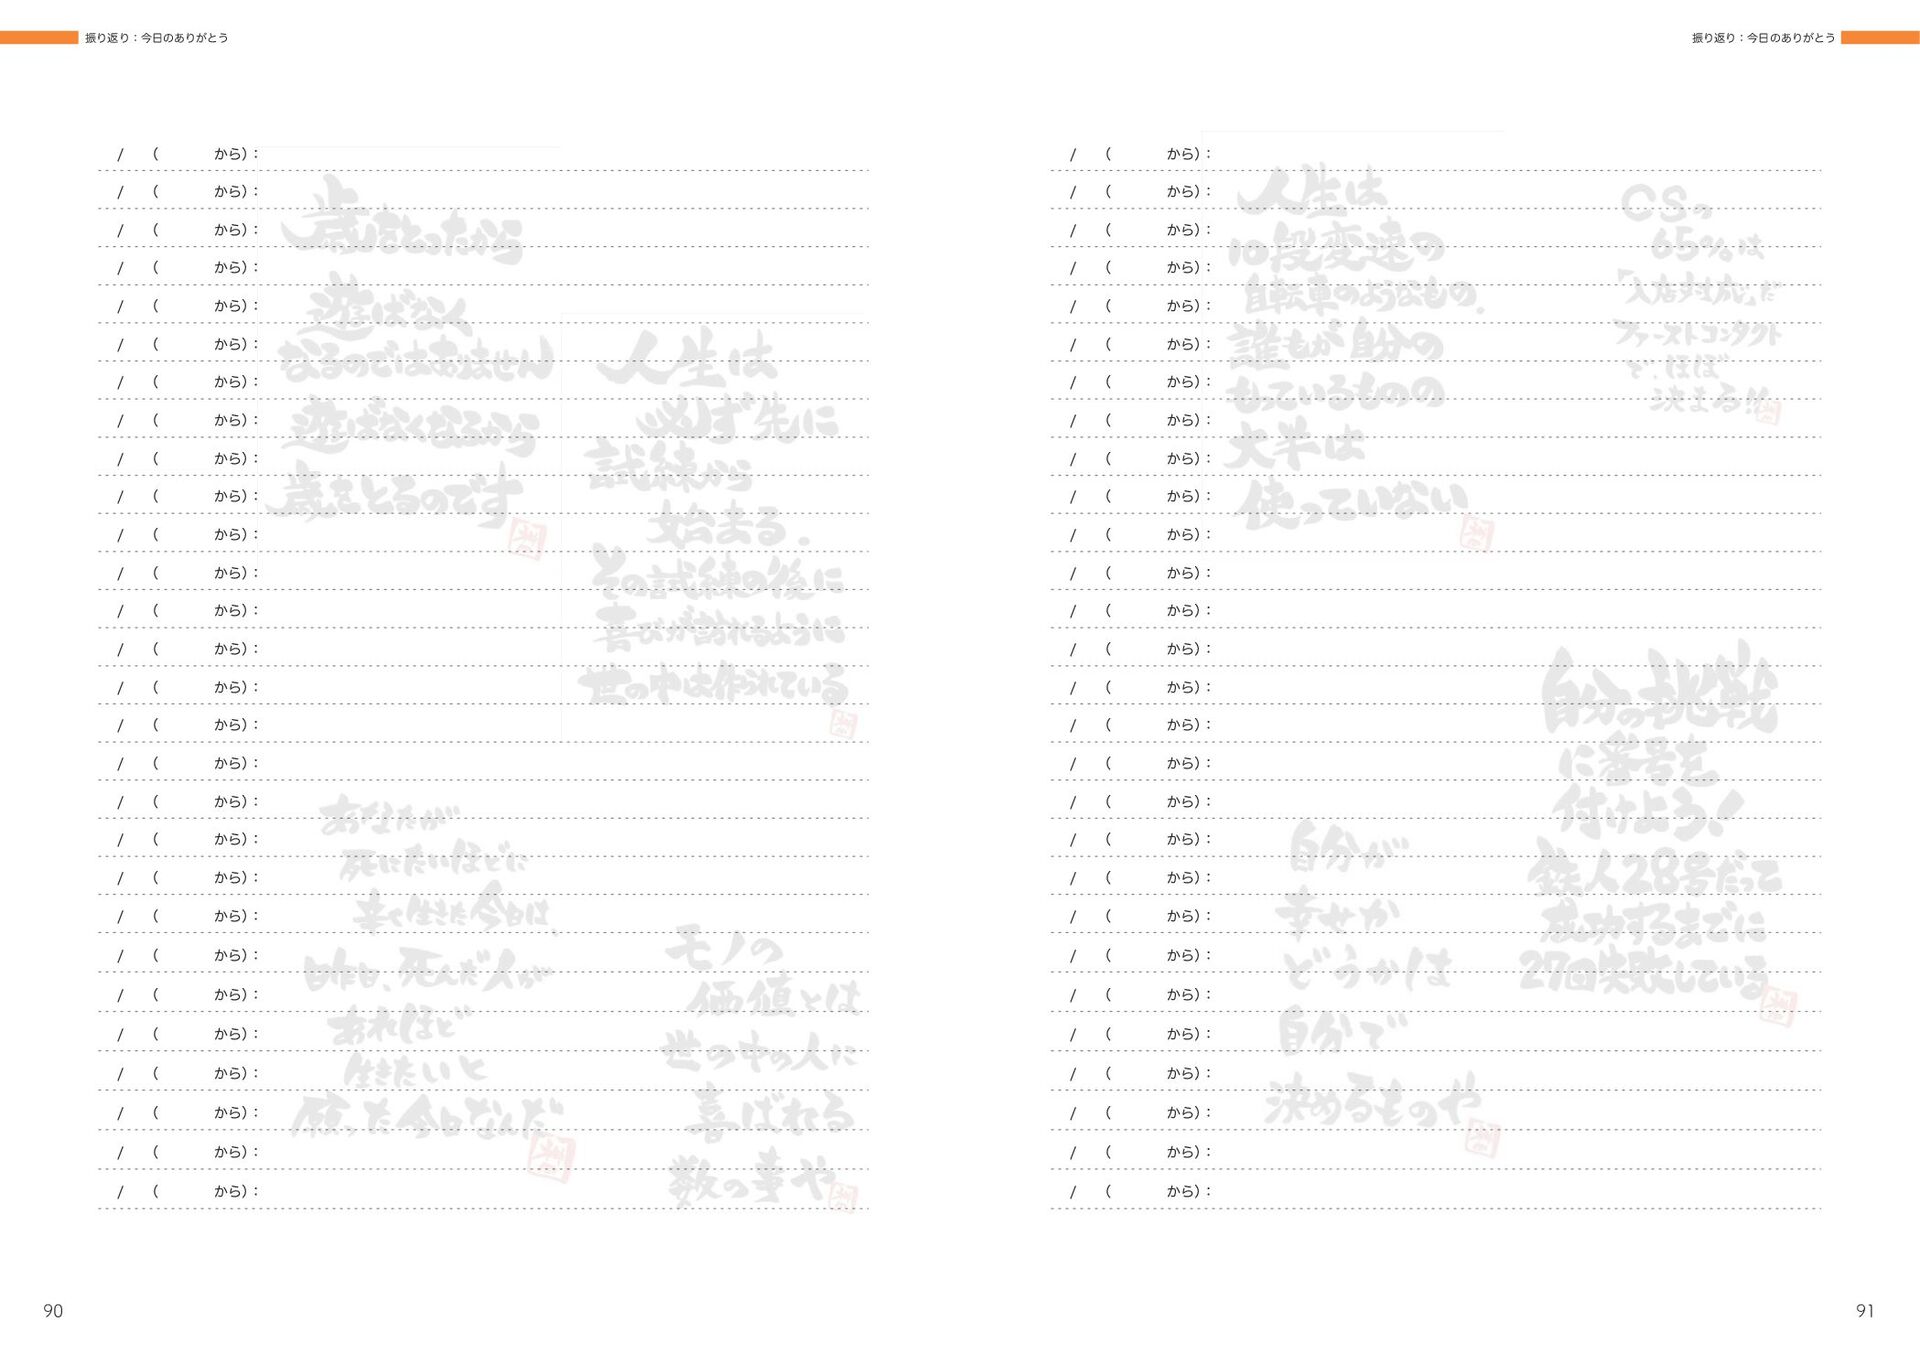 振り返り：今日のありがとう
/ ( から)：
/ ( から)：
/ ( から)：
/ ( から)：
/ ( から)：
/ ( から)：
/ ( から)：
/ ( から)：
/ ( から)：
/ ( から)：
/ ( から)：
/ ( から)：
/ ( から)：
/ ( から)：
/ ( から)：
/ ( から)：
/ ( から)：
/ ( から)：
/ ( から)：
/ ( から)：
/ ( から)：
/ ( から)：
/ ( から)：
/ ( から)：
/ ( から)：
/ ( から)：
/ ( から)：
/ ( から)：
歳をとったから
遊ばなく
なるのではありません
遊ばなくなるから
歳をとるのです
人生は
必ず先に
試練から
始まる.
その試練の後に
喜びが訪れるように
世の中は作られている
あなたが
死にたいほどに
辛く生きた今日は、
昨日、死んだ人が
あれほど
生きたいと
願った今日なんだ
モノの
価値とは
世の中の人に
喜ばれる
数の事や
90
振り返り：今日のありがとう
/ ( から)：
/ ( から)：
/ ( から)：
/ ( から)：
/ ( から)：
/ ( から)：
/ ( から)：
/ ( から)：
/ ( から)：
/ ( から)：
/ ( から)：
/ ( から)：
/ ( から)：
/ ( から)：
/ ( から)：
/ ( から)：
/ ( から)：
/ ( から)：
/ ( から)：
/ ( から)：
/ ( から)：
/ ( から)：
/ ( から)：
/ ( から)：
/ ( から)：
/ ( から)：
/ ( から)：
/ ( から)：
人生は
10段変速の
自転車のようなもの.
誰もが自分の
もっているものの
大半は
使っていない
CSの
65%は
「入店対応」だ
ファーストコンタクト
で、ほぼ
決まる!!
自分の挑戦
に番号を
付けよう!
鉄人28号だって
成功するまでに
27回失敗している
自分が
幸せか
どうかは
自分で
決めるものや
91